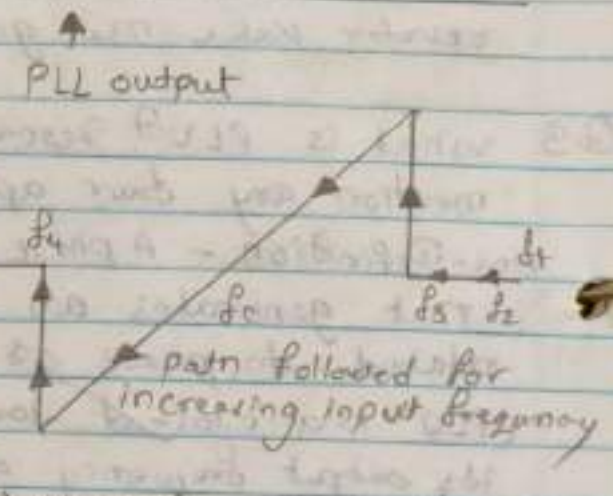 PLL output
f4
f1
fc
f3 f2
path followed for
increasing input frequnoy